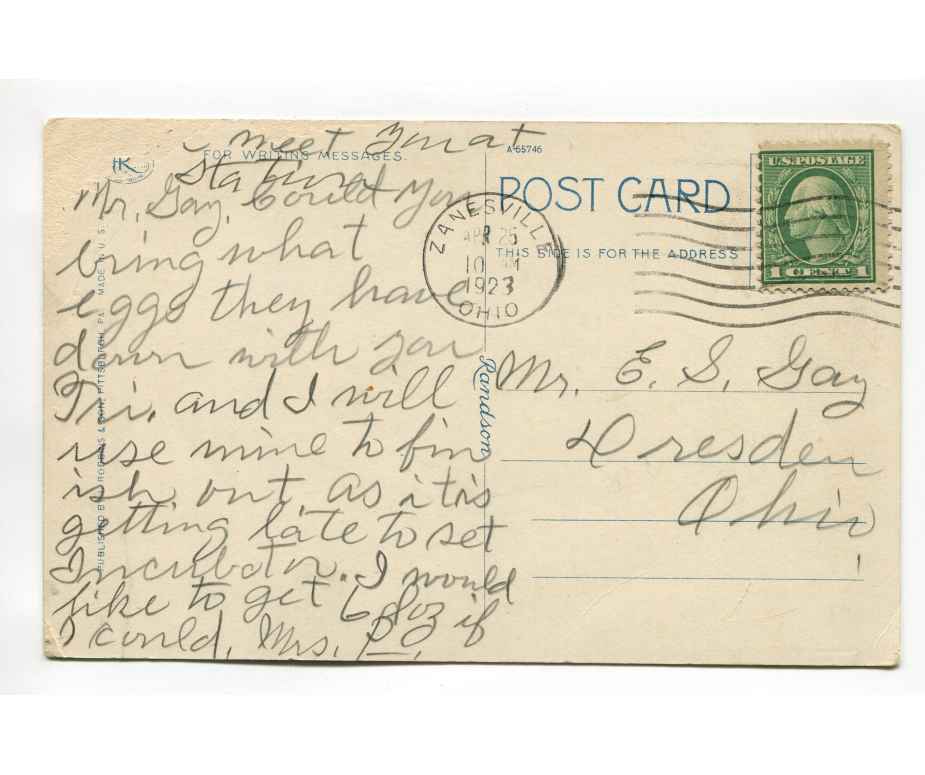 meet You at
Station
FOR WRITING MESSAGES.
Mr. Gay, Could You
bring what
eggs they have
down with you
Fri. and I will
use mine to fin
ish out as it is
getting late to set
Incubator. I would
like to get 6 doz if
I could, Mrs.
PUBLISHED BY I. ROBBINS & SON, PITTSBURGH, PA. MADE IN U. S.
Randson
A-65746
POST CARD
THIS SIDE IS FOR THE ADDRESS
ZANESVILLE
APR 25
10 M
1923
OHIO
U.S. POSTAGE
1 CENT 1
Mr. E. S. Gay
Dresden
Ohio